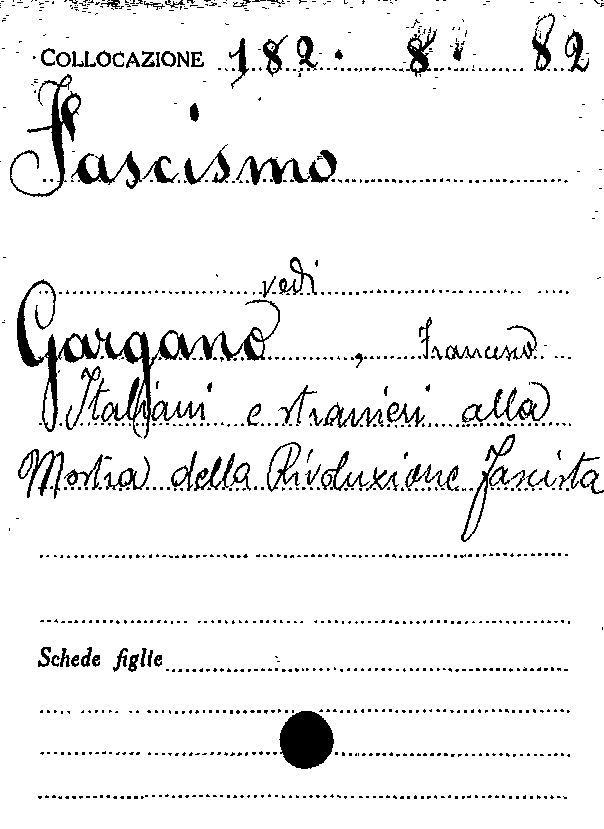 COLLOCAZIONE 182. 8. 82
Fascismo
vedi
Gargano, Francesco
Italiani e stranieri alla
Mostra della Rivoluzione Fascista
Schede figlie